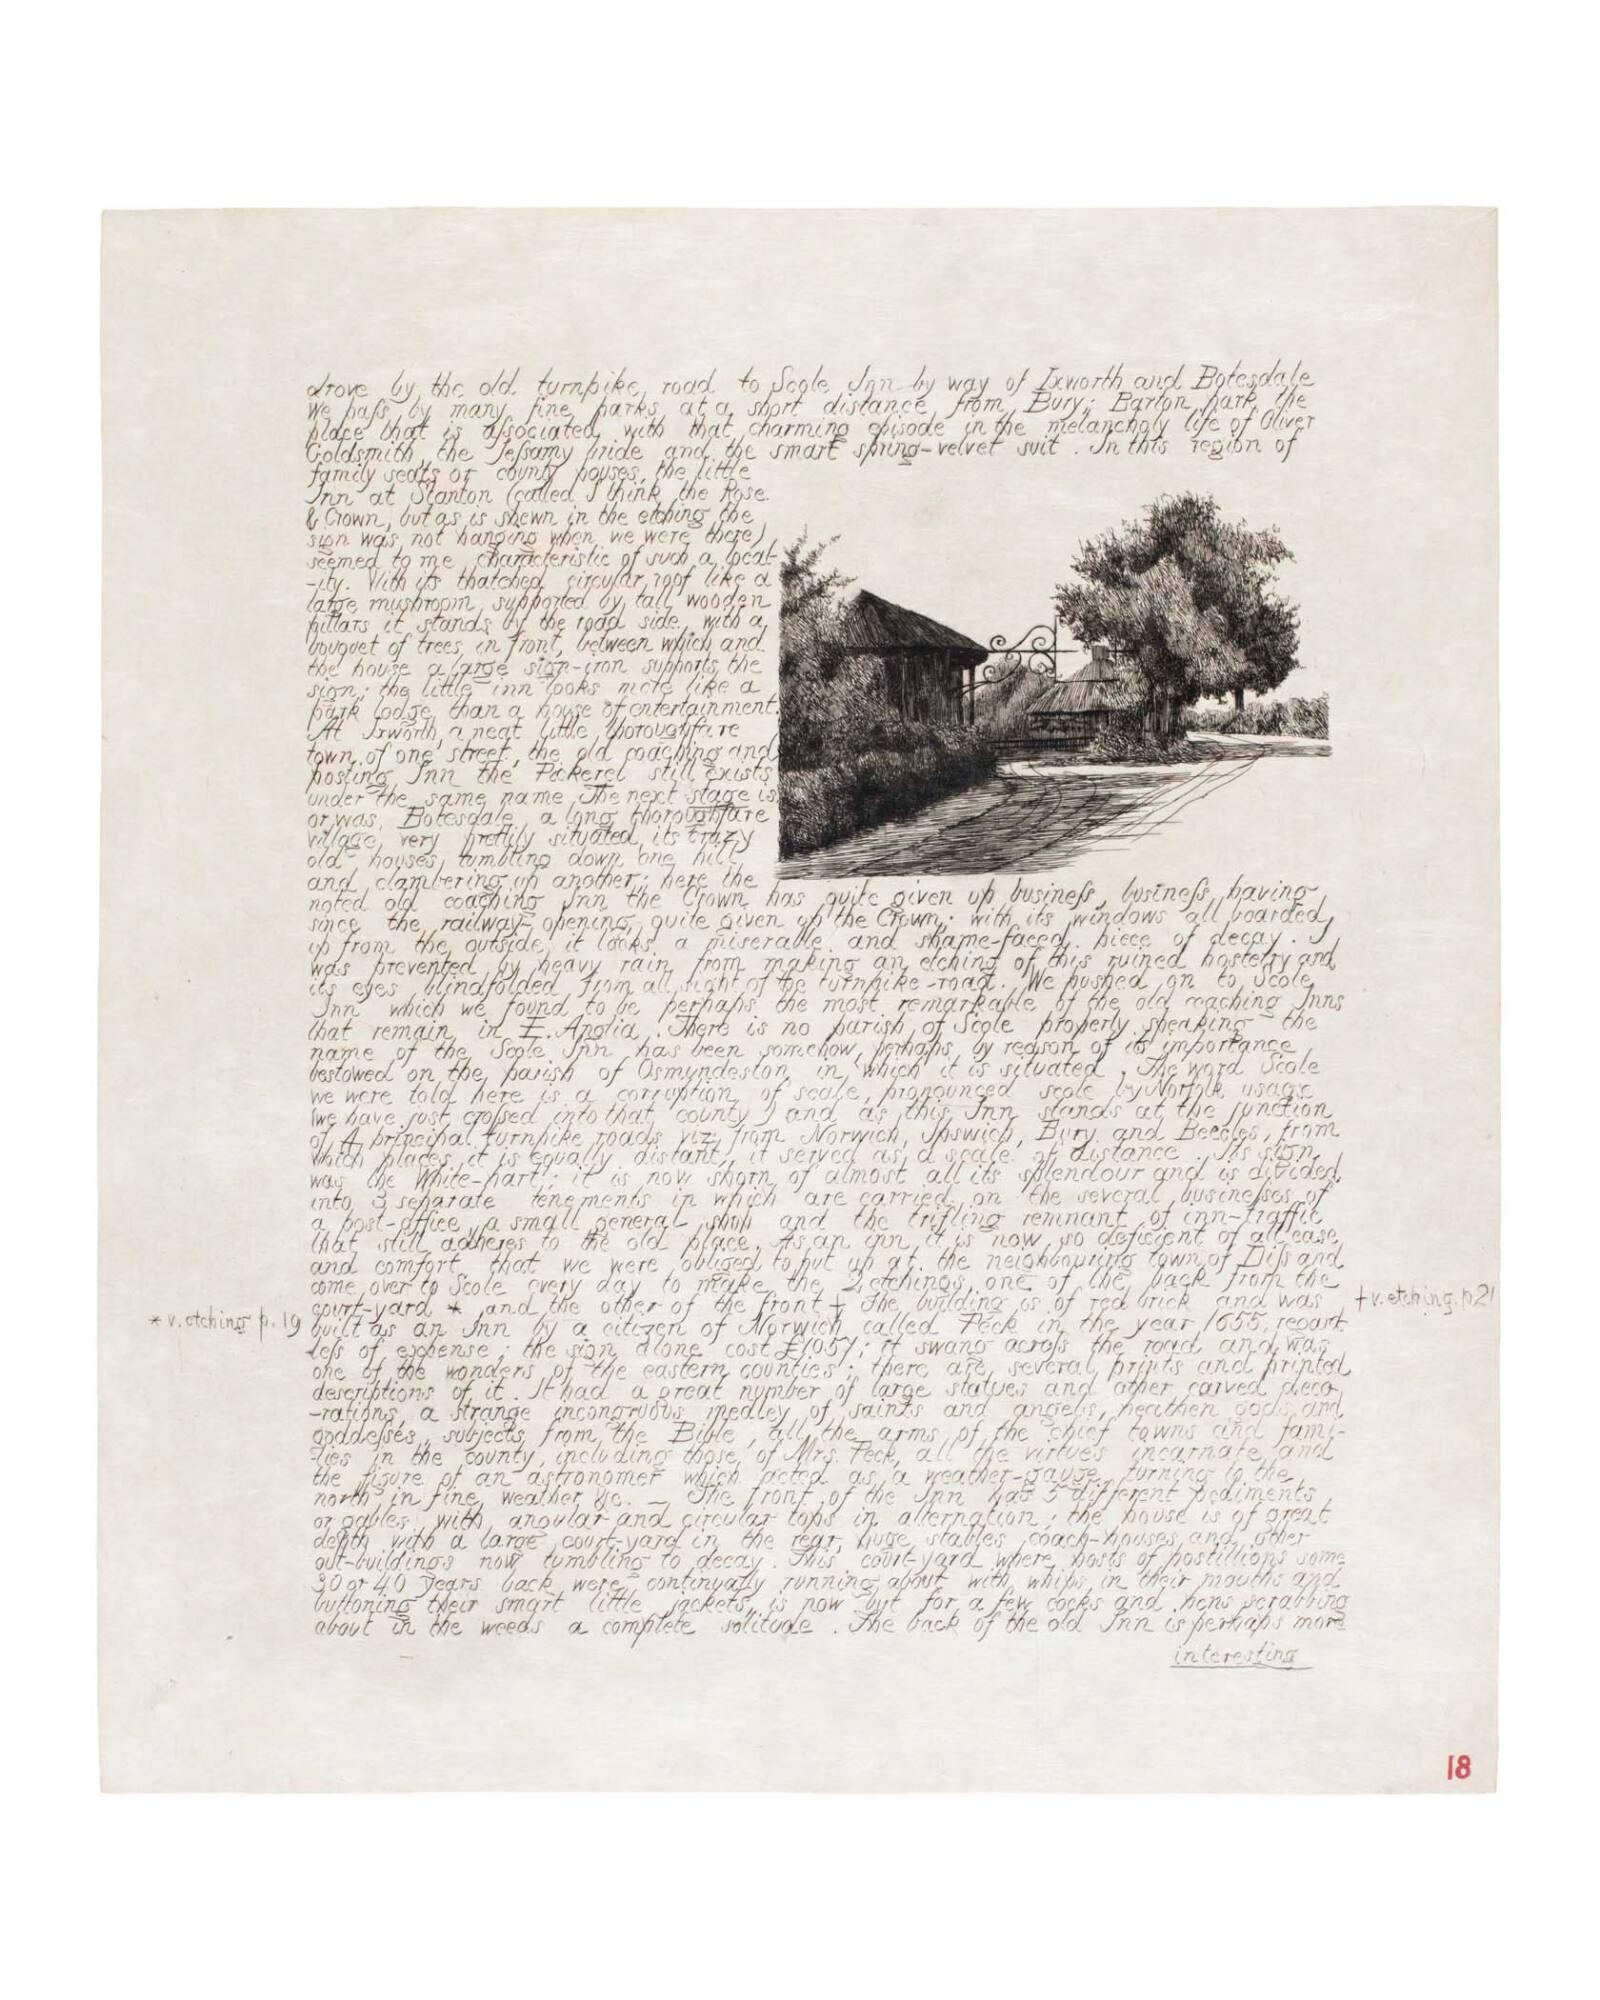 drove by the old turnpike road to Scole Inn by way of Ixworth and Botesdale
We paſs by many fine parks at a short distance from Bury; Barton park the
place that is aſsociated with that charming episode in the melancholy life of Oliver
Goldsmith, the Jeſsamy bride and the smart spring-velvet suit. In this region of
family seats or county houses, the little
Inn at Stanton (called I think the Rose
& Crown, but as is shewn in the etching the
sign was not hanging when we were there)
seemed to me characteristic of such a local-
-ity. With its thatched circular roof like a
large mushroom supported by tall wooden
pillars it stands by the road side with a
bouquet of trees in front, between which and
the house a large sign-iron supports the
sign; the little inn looks more like a
park lodge than a house of entertainment.
At Ixworth, a neat little thoroughfare
town of one street, the old coaching and
posting Inn the Pickerel still exists
under the same name. The next stage is
or was, Botesdale a long thoroughfare
village, very prettily situated, its crazy
old houses, tumbling down one hill
and clambering up another; here the
noted old coaching Inn the Crown has quite given up busineſs, busineſs having
since the railway-opening quite given up the Crown; with its windows all boarded
up from the outside, it looks a miserable and shame-faced piece of decay. I
was prevented by heavy rain from making an etching of this ruined hostelry and
its eyes blindfolded from all sight of the turnpike-road. We pushed on to Scole
Inn which we found to be perhaps the most remarkable of the old coaching Inns
that remain in E. Anglia. There is no parish of Scole properly speaking the
name of the Scole Inn has been somehow, perhaps by reason of its importance
bestowed on the parish of Osmyndeston in which it is situated. The word Scole
we were told here is a corruption of scale, pronounced scole by Norfolk usage
(we have just croſsed into that county) and as this Inn stands at the junction
of 4 principal turnpike roads viz. from Norwich, Ipswich, Bury and Beccles, from
which places it is equally distant, it served as a scale of distance. Its sign
was the White-hart; it is now shorn of almost all its splendour and is divided
into 3 separate tenements in which are carried on the several busineſses of
a post-office, a small general shop and the trifling remnant of inn-traffic
that still adheres to the old place. As an inn it is now so deficient of all ease
and comfort that we were obliged to put up at the neighbouring town of Diſs and
come over to Scole every day to make the 2 etchings, one of the back from the
court-yard * and the other of the front † The building is of red brick and was
† v. etching. p 21
* v. etching p. 19
built as an Inn by a citizen of Norwich called Peck in the year 1655, regard-
leſs of expense; the sign alone cost £1057; it swang acroſs the road and was
one of the wonders of the eastern counties; there are several prints and printed
descriptions of it. It had a great number of large statues and other carved deco
-rations, a strange incongruous medley of saints and angels, heathen gods and
goddeſses, subjects from the Bible, all the arms of the chief towns and fami-
-lies in the county, including those of Mrs. Peck, all the virtues incarnate and
the figure of an astronomer which acted as a weather-gauge turning to the
north in fine weather &c. — The front of the Inn has 5 different pediments
or gables with angular and circular tops in alternation; the house is of great
depth with a large court-yard in the rear, huge stables, coach-houses and other
out-buildings now tumbling to decay. This court-yard where hosts of postillions some
30 or 40 years back were continually running about with whips in their mouths and
buttoning their smart little jackets, is now but for a few cocks and hens scrabbing
about in the weeds a complete solitude. The back of the old Inn is perhaps more
interesting
18